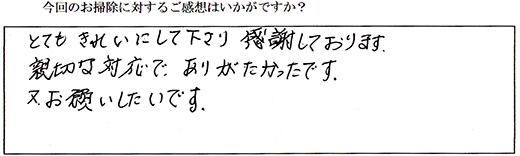 今回のお掃除に対するご感想はいかがですか？
とても きれいにして下さり 感謝しております.
親切な対応で. ありがたかったです.
又お願いしたいです.